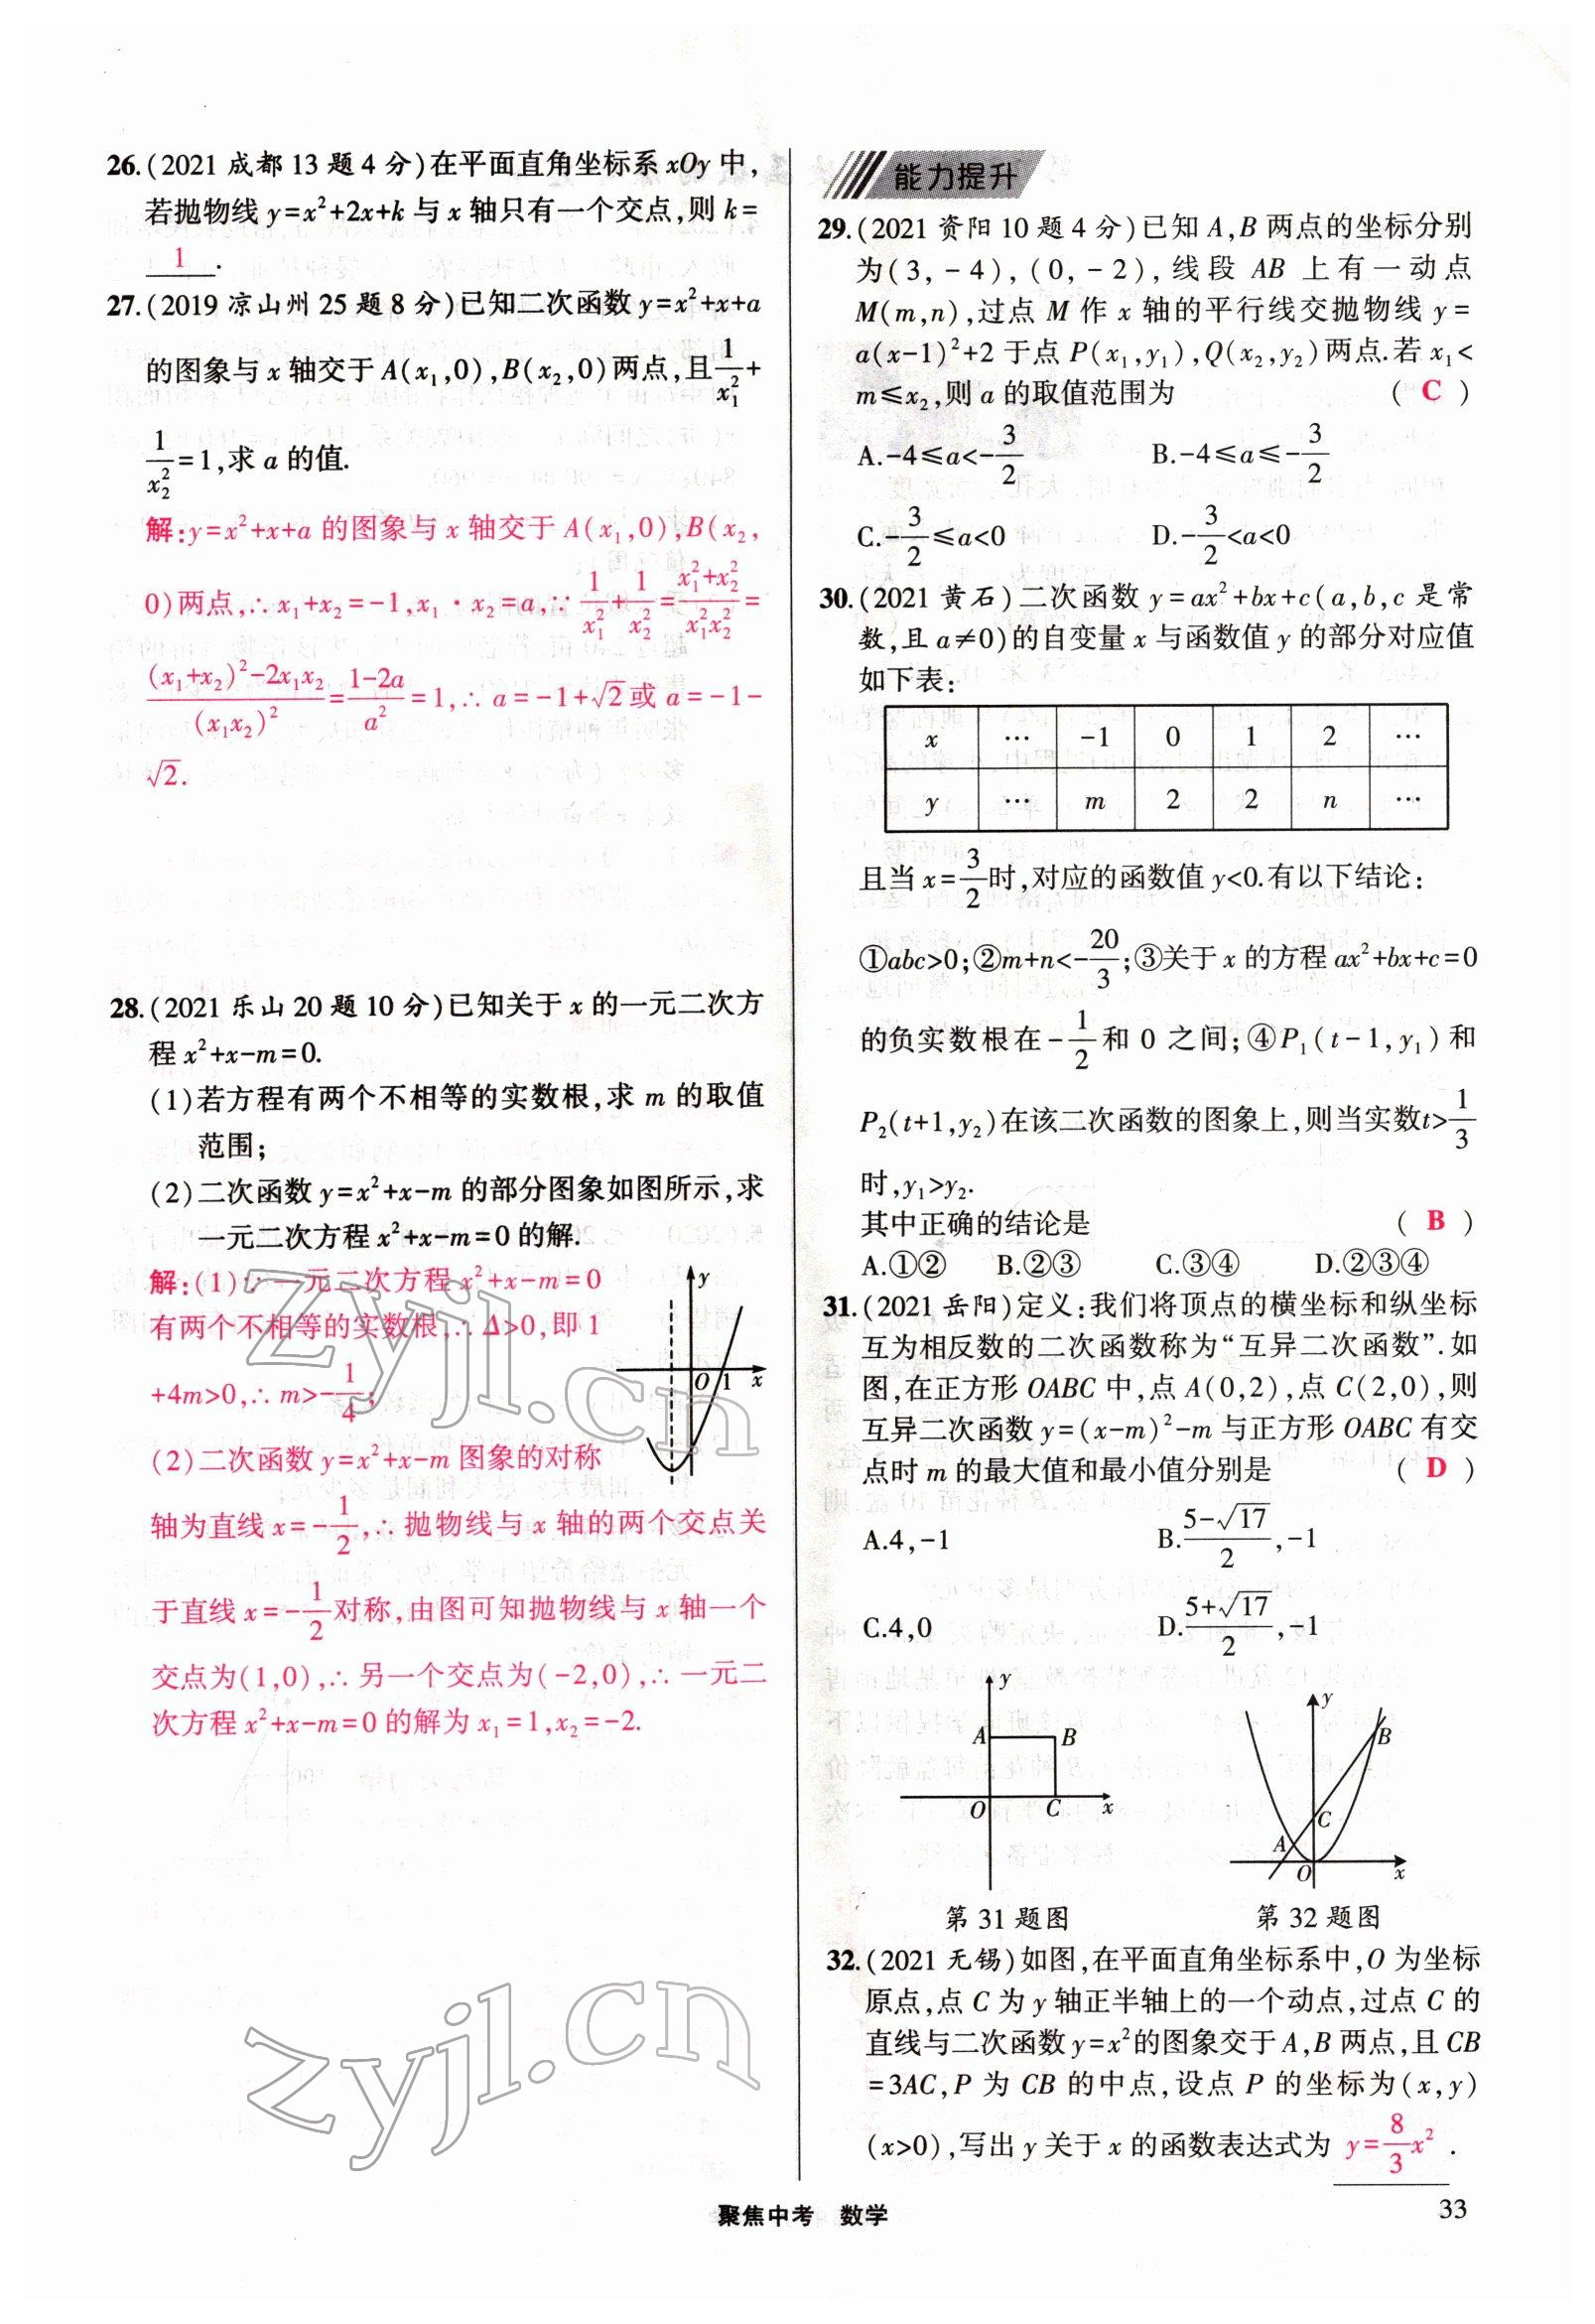 26.(2021成都13题4分)在平面直角坐标系xOy中,
若抛物线y=x²+2x+k与x轴只有一个交点,则k=
1.
27.(2019凉山州25题8分)已知二次函数y=x²+x+a
的图象与x轴交于A(x₁,0),B(x₂,0)两点,且1/x₁²+
1/x₂²=1,求a的值.
解:y=x²+x+a的图象与x轴交于A(x₁,0),B(x₂,
0)两点,∴x₁+x₂=-1,x₁·x₂=a,∵1/x₁²+1/x₂²=(x₁²+x₂²)/(x₁²x₂²)=
((x₁+x₂)²-2x₁x₂)/(x₁x₂)²=(1-2a)/a²=1,∴a=-1+√2或a=-1-
√2.
28.(2021乐山20题10分)已知关于x的一元二次方
程x²+x-m=0.
(1)若方程有两个不相等的实数根,求m的取值
范围;
(2)二次函数y=x²+x-m的部分图象如图所示,求
一元二次方程x²+x-m=0的解.
解:(1)∵一元二次方程x²+x-m=0
有两个不相等的实数根,∴Δ>0,即1
+4m>0,∴m>-1/4;
(2)二次函数y=x²+x-m图象的对称
轴为直线x=-1/2,∴抛物线与x轴的两个交点关
于直线x=-1/2对称,由图可知抛物线与x轴一个
交点为(1,0),∴另一个交点为(-2,0),∴一元二
次方程x²+x-m=0的解为x₁=1,x₂=-2.
y
O 1 x
能力提升
29.(2021资阳10题4分)已知A,B两点的坐标分别
为(3,-4),(0,-2),线段AB上有一动点
M(m,n),过点M作x轴的平行线交抛物线y=
a(x-1)²+2于点P(x₁,y₁),Q(x₂,y₂)两点.若x₁<
m≤x₂,则a的取值范围为 (C)
A.-4≤a<-3/2 B.-4≤a≤-3/2
C.-3/2≤a<0 D.-3/2<a<0
30.(2021黄石)二次函数y=ax²+bx+c(a,b,c是常
数,且a≠0)的自变量x与函数值y的部分对应值
如下表:
x … -1 0 1 2 …
y … m 2 2 n …
且当x=3/2时,对应的函数值y<0.有以下结论:
①abc>0;②m+n<-20/3;③关于x的方程ax²+bx+c=0
的负实数根在-1/2和0之间;④P₁(t-1,y₁)和
P₂(t+1,y₂)在该二次函数的图象上,则当实数t>1/3
时,y₁>y₂.
其中正确的结论是 (B)
A.①② B.②③ C.③④ D.②③④
31.(2021岳阳)定义:我们将顶点的横坐标和纵坐标
互为相反数的二次函数称为“互异二次函数”.如
图,在正方形OABC中,点A(0,2),点C(2,0),则
互异二次函数y=(x-m)²-m与正方形OABC有交
点时m的最大值和最小值分别是 (D)
A.4,-1 B.(5-√17)/2,-1
C.4,0 D.(5+√17)/2,-1
y
A B
O C x
第31题图
y
B
C
A
O x
第32题图
32.(2021无锡)如图,在平面直角坐标系中,O为坐标
原点,点C为y轴正半轴上的一个动点,过点C的
直线与二次函数y=x²的图象交于A,B两点,且CB
=3AC,P为CB的中点,设点P的坐标为(x,y)
(x>0),写出y关于x的函数表达式为 y=8/3x².
聚焦中考 数学
33
zyjl.cn
zyjl.cn